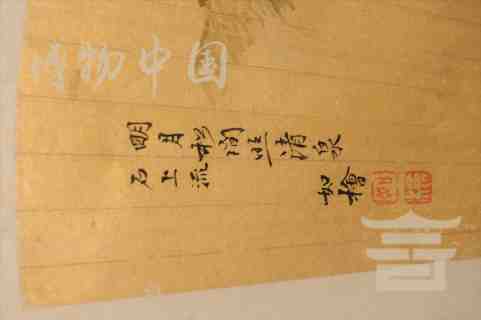 博物中国
明月松間照清泉
石上流
如檜